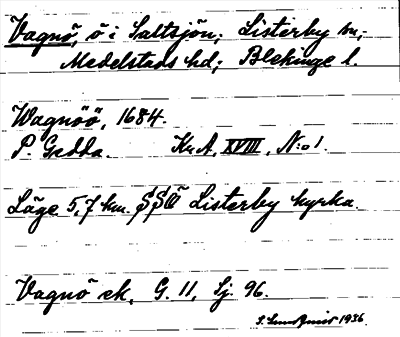 Vagnö, ö i Saltsjön; Listerby sn;
Medelstads hd; Blekinge l.
Wagnöö, 1684.
P. Gedda. Kr.A. XVIII, N:o 1.
Läge 5,7 km. SSÖ Listerby kyrka.
Vagnö ek. G. 11, Sj. 96.
1936